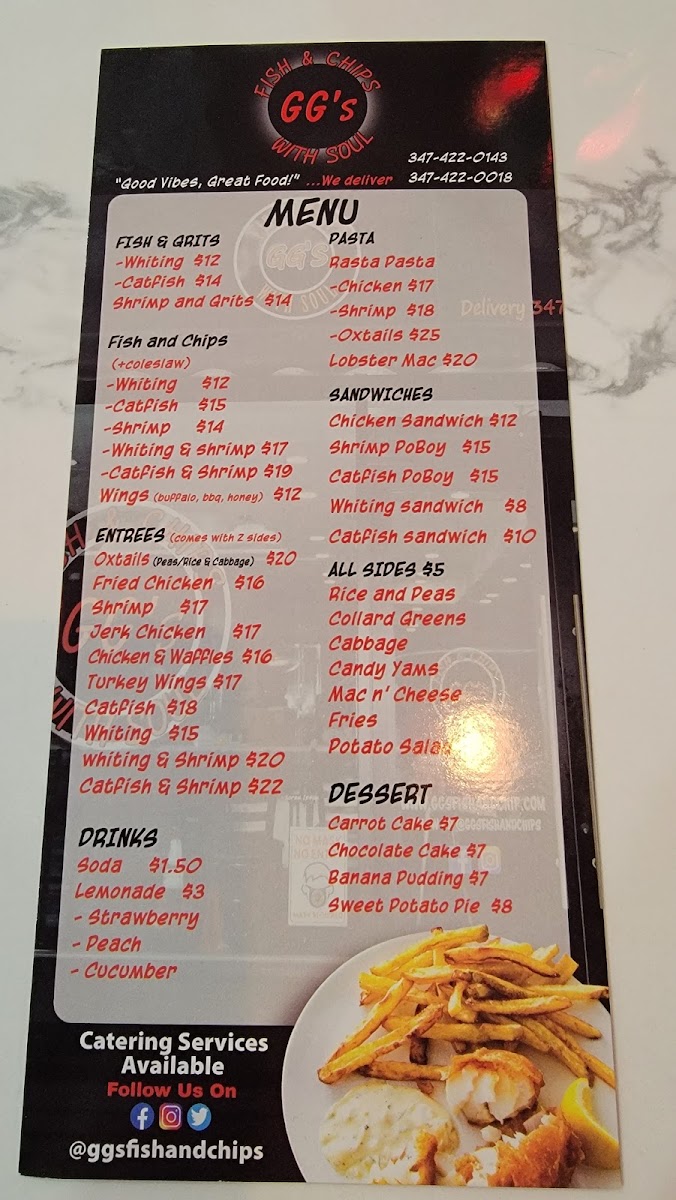 FISH & CHIPS
GG's
WITH SOUL
347-422-0143
"Good Vibes, Great Food!" ...We deliver 347-422-0018
MENU
FISH & GRITS
-Whiting $12
-Catfish $14
Shrimp and Grits $14
Fish and Chips
(+coleslaw)
-Whiting $12
-Catfish $15
-Shrimp $14
-Whiting & shrimp $17
-Catfish & Shrimp $19
Wings (buffalo, bbq, honey) $12
ENTREES (comes with 2 sides)
Oxtails (Peas/Rice & Cabbage) $20
Fried Chicken $16
Shrimp $17
Jerk Chicken $17
Chicken & Waffles $16
Turkey Wings $17
Catfish $18
Whiting $15
whiting & Shrimp $20
Catfish & Shrimp $22
DRINKS
Soda $1.50
Lemonade $3
- Strawberry
- Peach
- Cucumber
PASTA
Rasta Pasta
-Chicken $17
-Shrimp $18
-Oxtails $25
Lobster Mac $20
Delivery 347
SANDWICHES
Chicken Sandwich $12
Shrimp PoBoy $15
Catfish PoBoy $15
Whiting sandwich $8
Catfish sandwich $10
ALL SIDES $5
Rice and Peas
Collard Greens
Cabbage
Candy Yams
Mac n' Cheese
Fries
Potato Salad
DESSERT
Carrot Cake $7
Chocolate Cake $7
Banana Pudding $7
Sweet Potato Pie $8
Catering Services
Available
Follow Us On
@ggsfishandchips